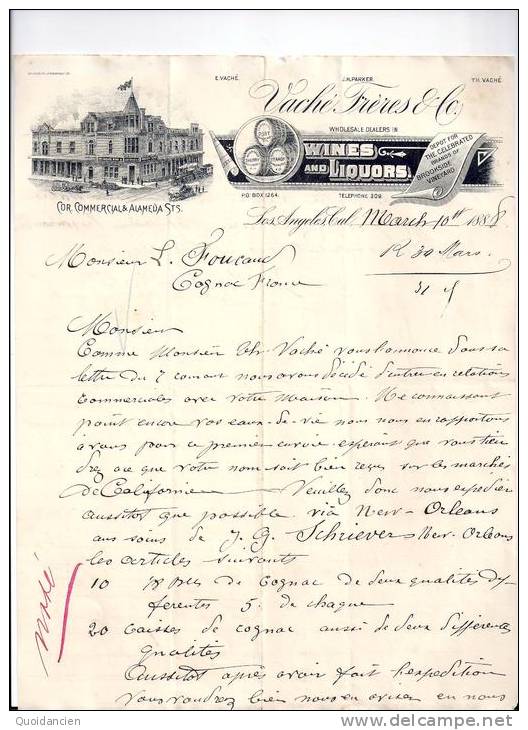 E. VACHÉ. J.H. PARKER. TH. VACHÉ.
Vaché Frères & Co.
WHOLESALE DEALERS IN
WINES
AND LIQUORS,
PORT
SHERRY
BRANDY
DEPOT FOR
THE CELEBRATED
BRANDS OF
BROOKSIDE
VINEYARD
P.O. BOX 1264. TELEPHONE 309.
COR. COMMERCIAL & ALAMEDA STS.
Los Angeles, Cal. March 10th 1888
R 30 Mars
Monsieur L. Foucaud
Cognac France
Monsieur
Comme Monsieur Th. Vaché vous l'annonce dans sa
lettre du 7 courant nous avons décidé d'entrer en relations
commerciales avec votre maison. Ne connaissant
point encore vos eaux-de-vie nous nous en rapportons
à vous pour ce premier envoi esperant que vous tien
drez a ce que votre nom soit bien reçu sur les marchés
de Californie Veuillez donc nous expedier
aussitot que possible via New-Orleans
aux soins de J. G. Schriever New-Orleans
les articles suivants
10 Bles de Cognac de deux qualités dif
ferentes 5. de chaque
20 caisses de cognac aussi de deux differentes
qualités
Aussitot après avoir fait l'expedition
vous voudrez bien nous en aviser en nous
noté
Quoidancien
delcampe.net